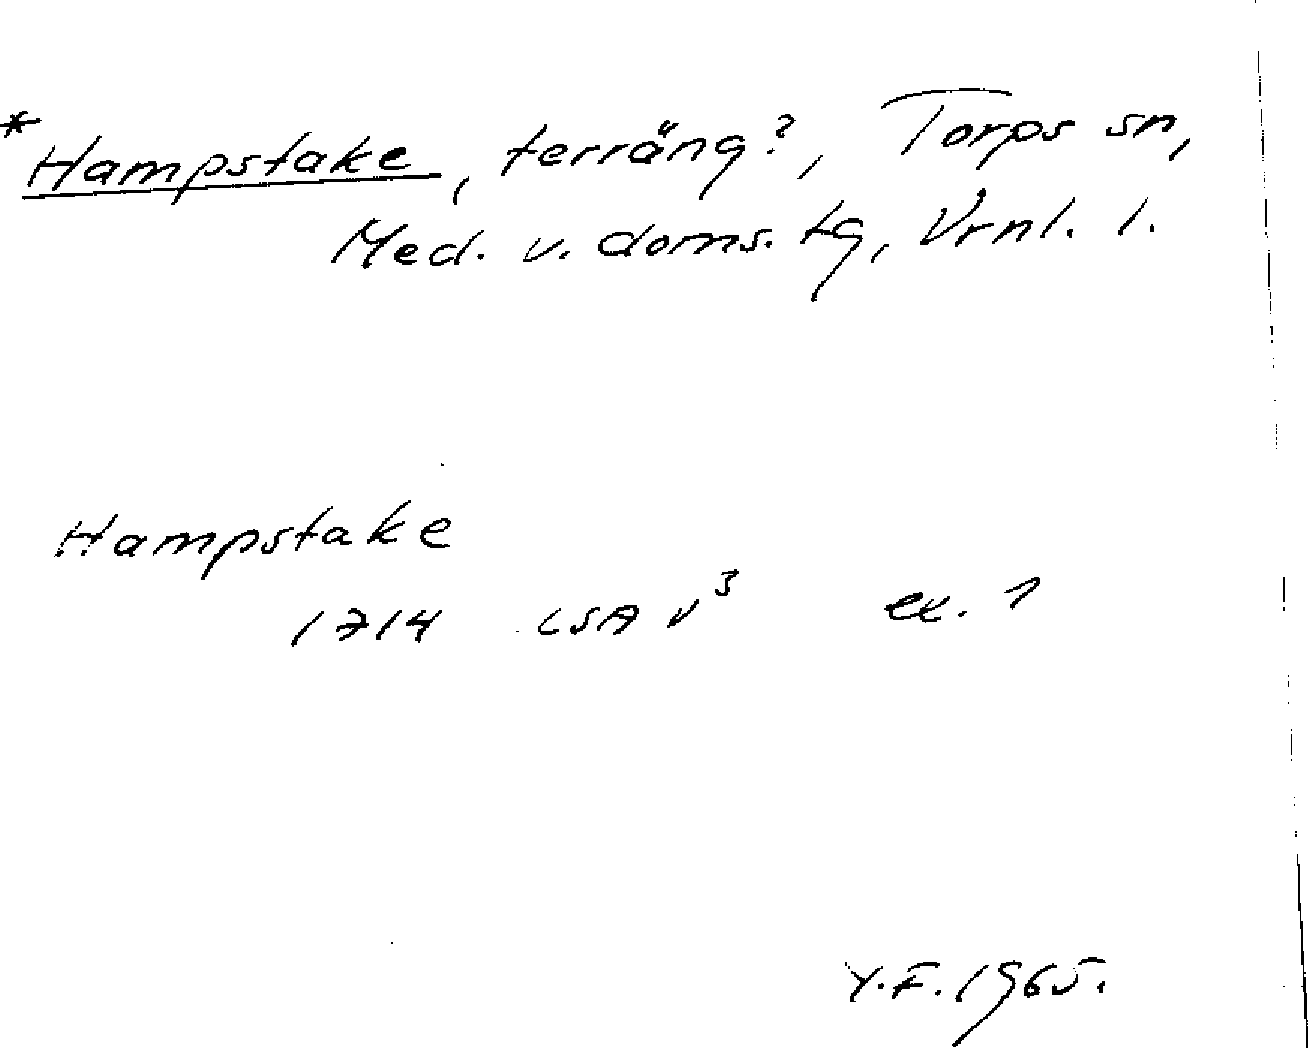 *Hampstake, terräng?, Torps sn,
Med. v. doms. tg, Vrnl. l.
Hampstake
1714 LSA v³ ex. 1
Y.F. 1965.